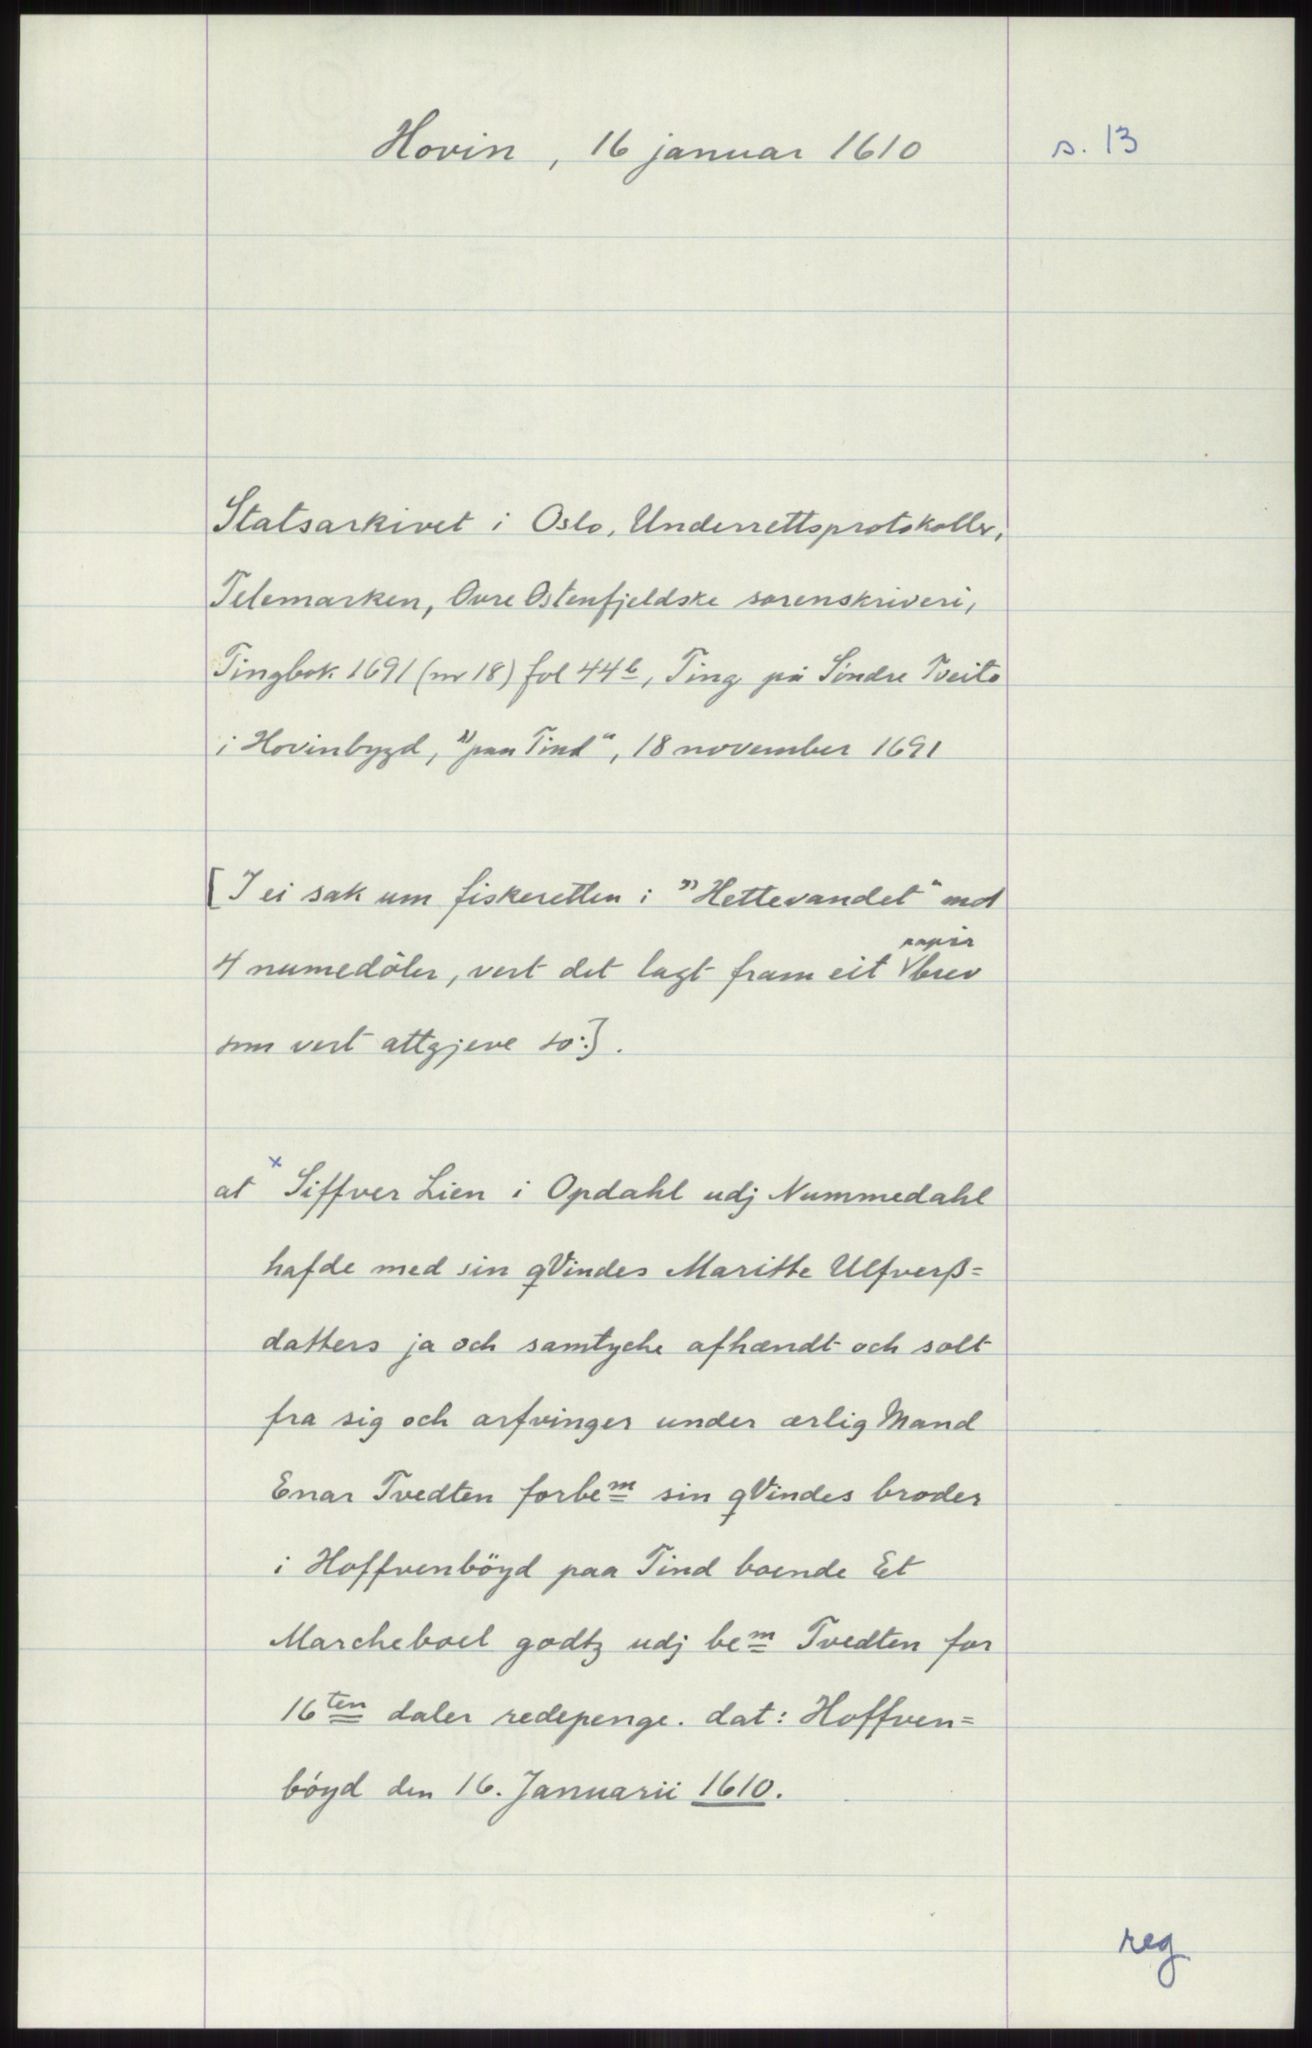 Hovin, 16 januar 1610
s. 13
Statsarkivet i Oslo, Underrettsprotokoller,
Telemarken, Øvre Østenfjeldske sorenskriveri,
Tingbok 1691 (nr 18) fol 44b, Ting på Søndre Tveito
i Hovinbygd, "paa Tind", 18 november 1691
[I ei sak um fiskeretten i "Hettevandet" mot
papir
4 numedøler, vert det lagt fram eit brev
som vert attgjeve so:].
at x Siffver Lien i Opdahl udj Nummedahl
hafde med sin qVindes Maritte Ulfverß=
datters ja och samtyche afhændt och solt
fra sig och arfvinger under ærlig Mand
Enar Tvedten forbem sin qVindes broder
i Hoffvenböyd paa Tind boende Et
Marcheboel godtz udj bem Tvedten for
16ten daler redepenge. dat: Hoffven=
böyd den 16. Januarii 1610.
reg